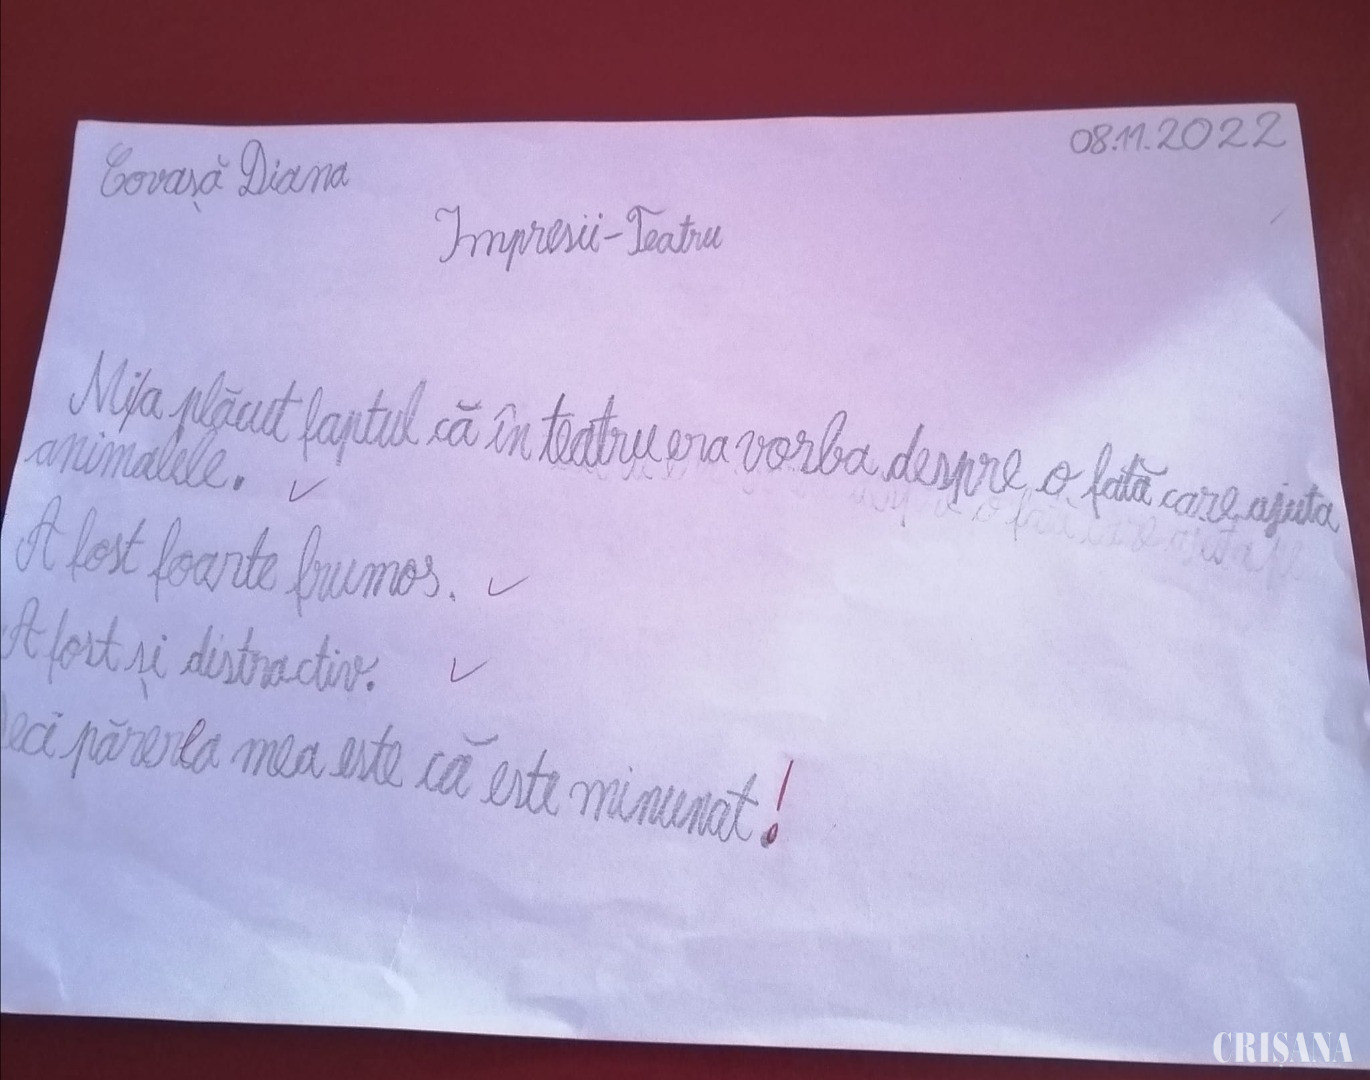 Covașă Diana
08.11.2022
Impresii-Teatru
Mi/a plăcut faptul că în teatru era vorba despre o fată care ajuta
animalele.
A fost foarte frumos.
A fost și distractiv.
Deci părerea mea este că este minunat!
CRIȘANA